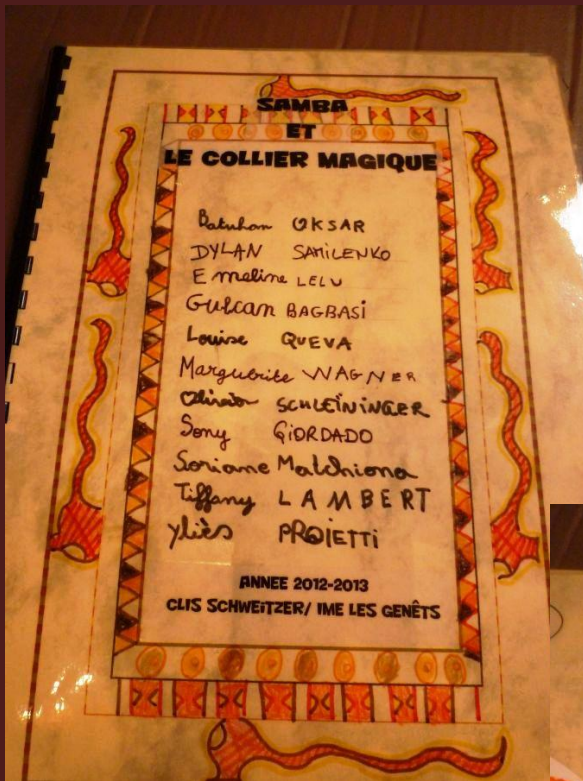 SAMBA
ET
LE COLLIER MAGIQUE
Batuhan OKSAR
DYLAN SAMILENKO
Emeline LELU
Gulcan BAGBASi
Louise QUEVA
Marguerite WAGNER
SCHLEÏNINGER
Sony GiORDADO
Soriane Malchiona
Tiffany LAMBERT
Yliès PROIETTi
ANNEE 2012-2013
CLIS SCHWEITZER/ IME LES GENÊTS